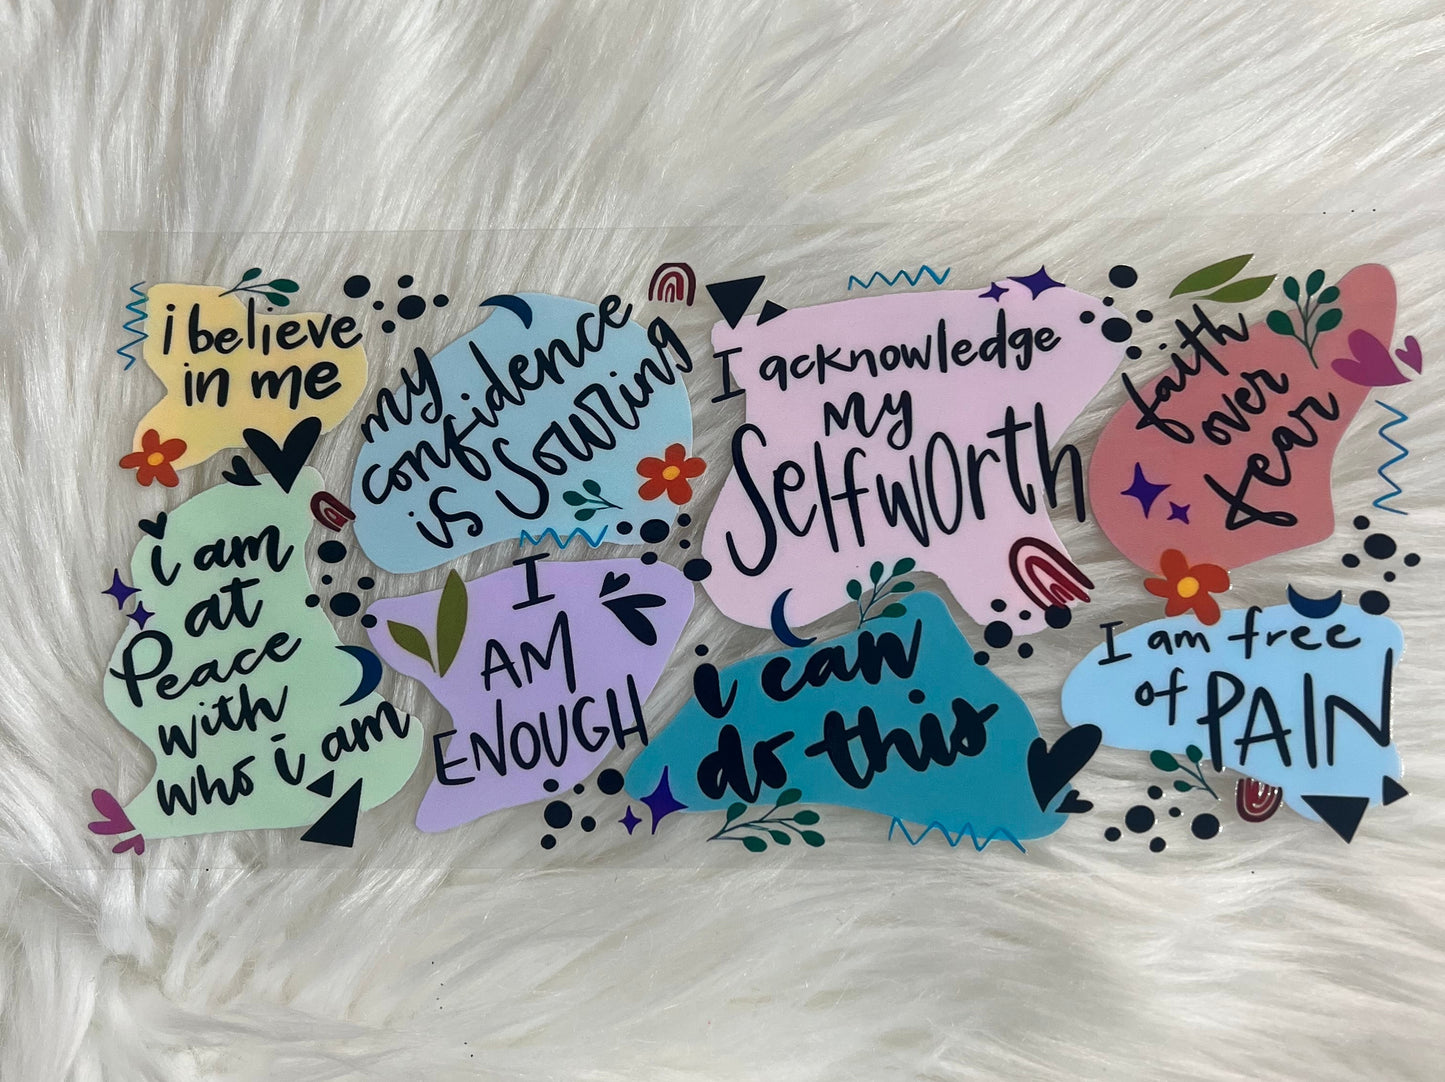 i believe
in me
my
confidence
is Souring
I acknowledge
my
Selfworth
faith
over
fear
i am
at
Peace
with
who i am
I
AM
ENOUGH
i can
do this
I am free
of PAIN